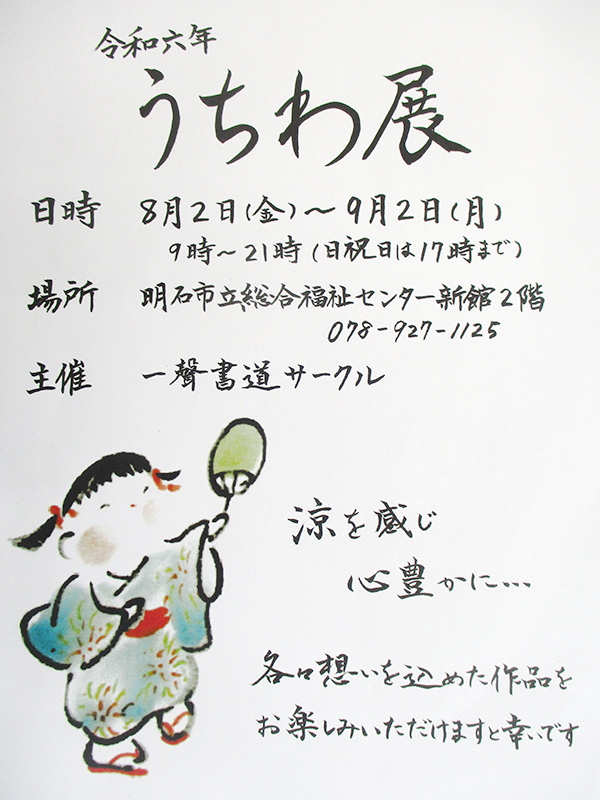 令和六年
うちわ展
日時 8月2日(金)～9月2日(月)
9時～21時(日祝日は17時まで)
場所 明石市立総合福祉センター新館2階
078-927-1125
主催 一聲書道サークル
涼を感じ
心豊かに...
各々想いを込めた作品を
お楽しみいただけますと幸いです